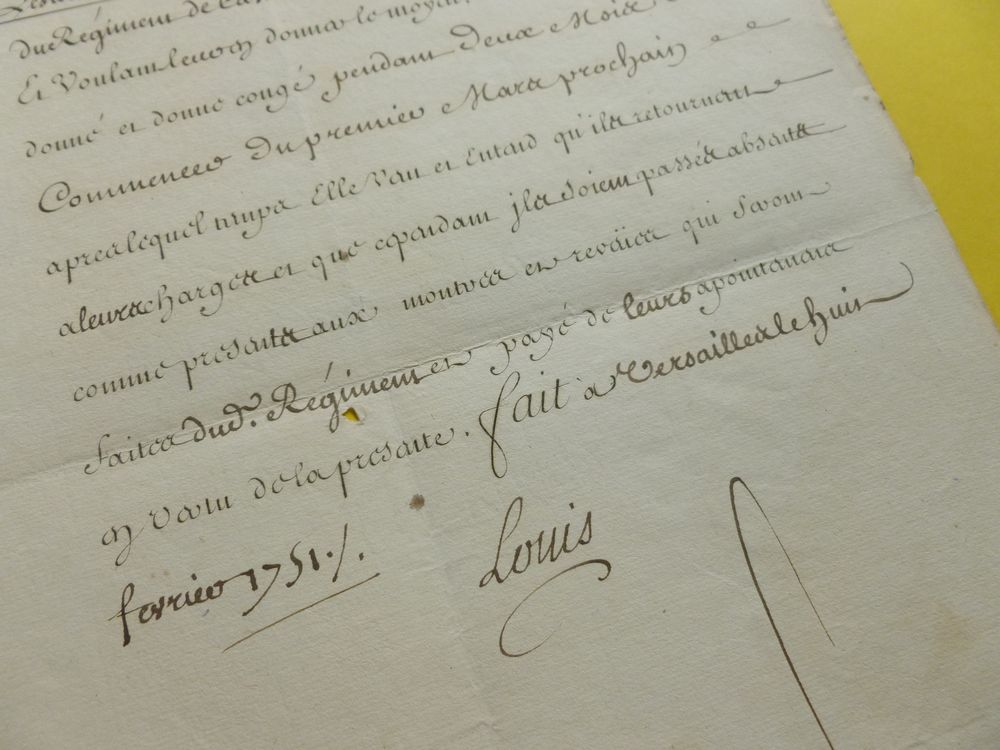 du Régiment de
Et Voulant leur en donner le moyen
donné et donne congé pendant Deux Mois
Commencer Du premier Mars prochain
apres lequel temps Elle Veut et Entend qu'ils retournent
a leurs charges et que cependant ils soient passés absents
comme presents aux montres et reveües qui seront
faites dud. Régiment et payé de leurs apointements
en vertu de la presente. fait a Versailles le huit
fevrier 1751./.
Louis